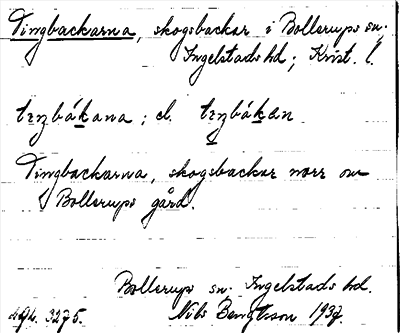 Tingbackarna, skogsbackar i Bollerups sn.
Ingelstads hd; Krist. l.
tɪŋbákana; el. tɪŋbákan
Tingbackarna, skogsbackar norr om
Bollerups gård.
Bollerups sn. Ingelstads hd.
3275. Nils Bengtsson 1937.